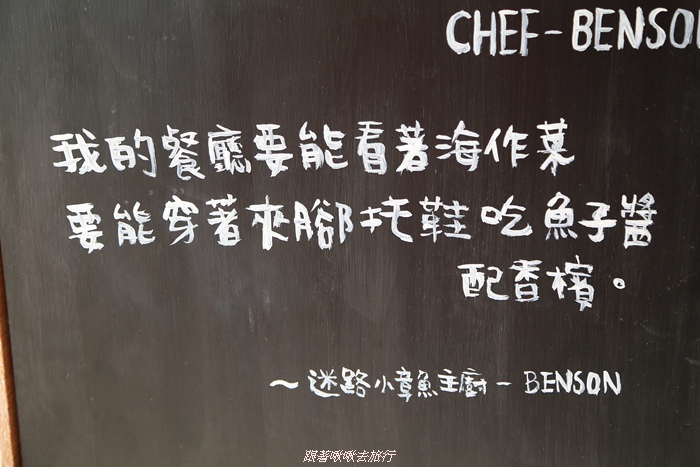 CHEF-BENSON
我的餐廳要能看著海作菜
要能穿著夾腳拖鞋吃魚子醬
配香檳。
～迷路小章魚主廚-BENSON
跟著啾啾去旅行